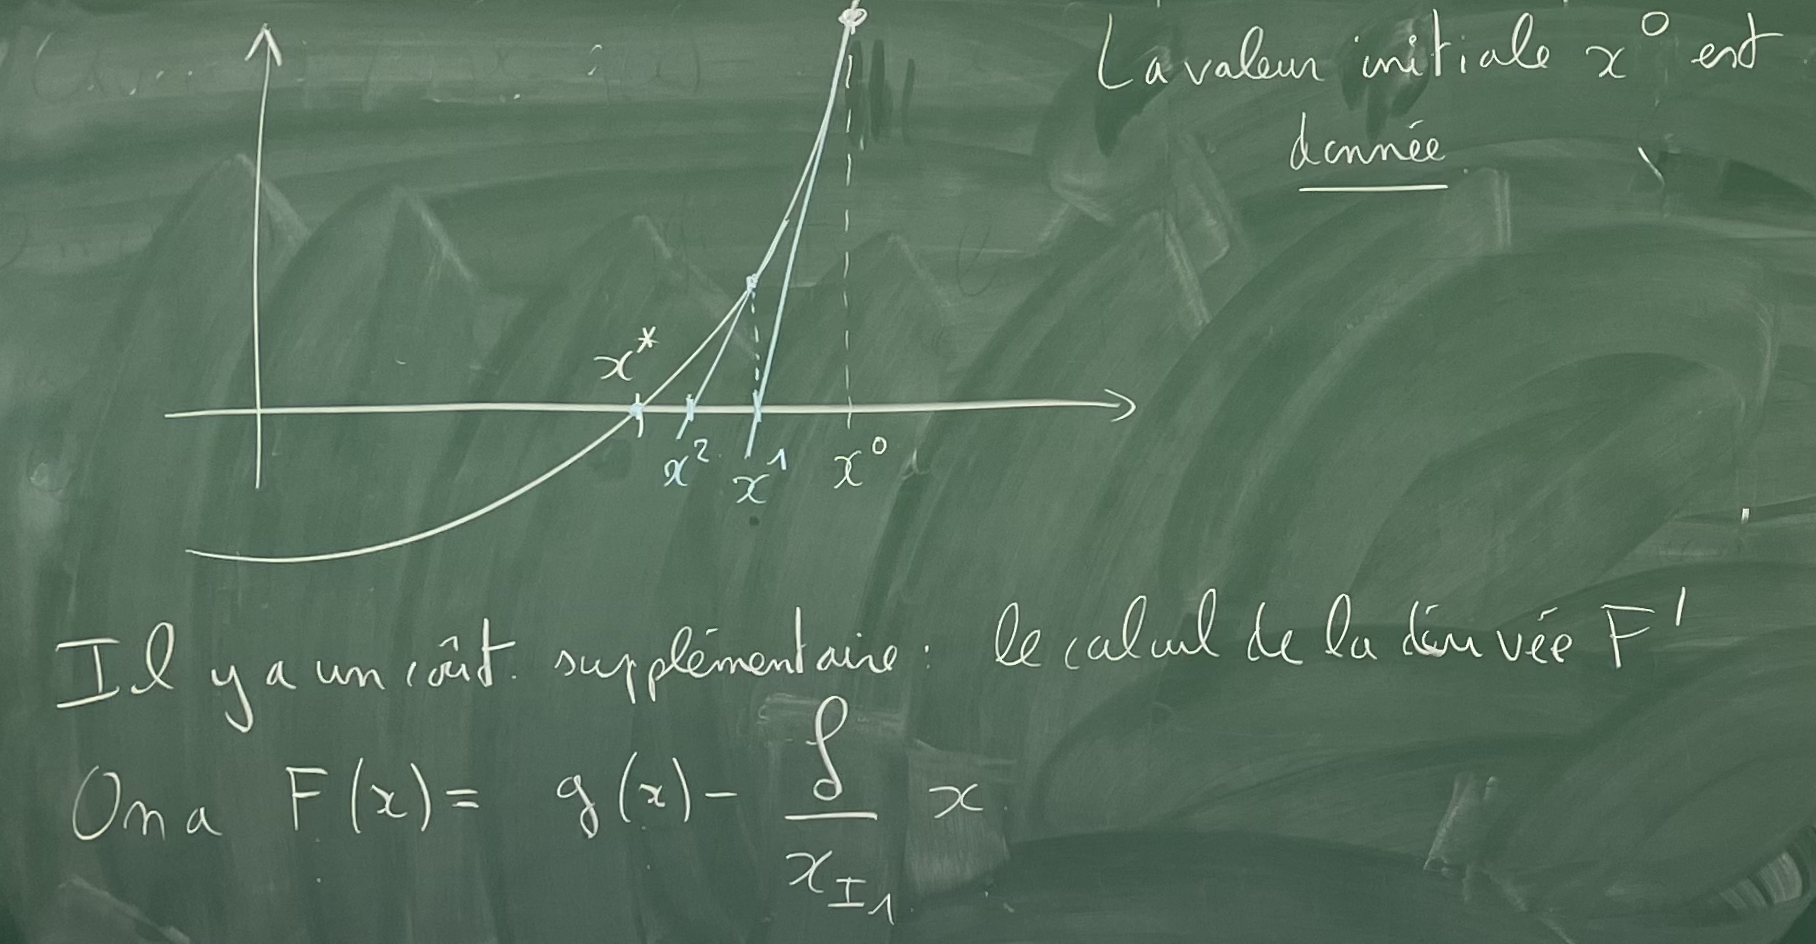 La valeur initiale x⁰ est
donnée
x*
x² x¹ x⁰
Il y a un coût supplémentaire : le calcul de la dérivée F'
On a F(x) = g(x) - f/x_{I_1} x